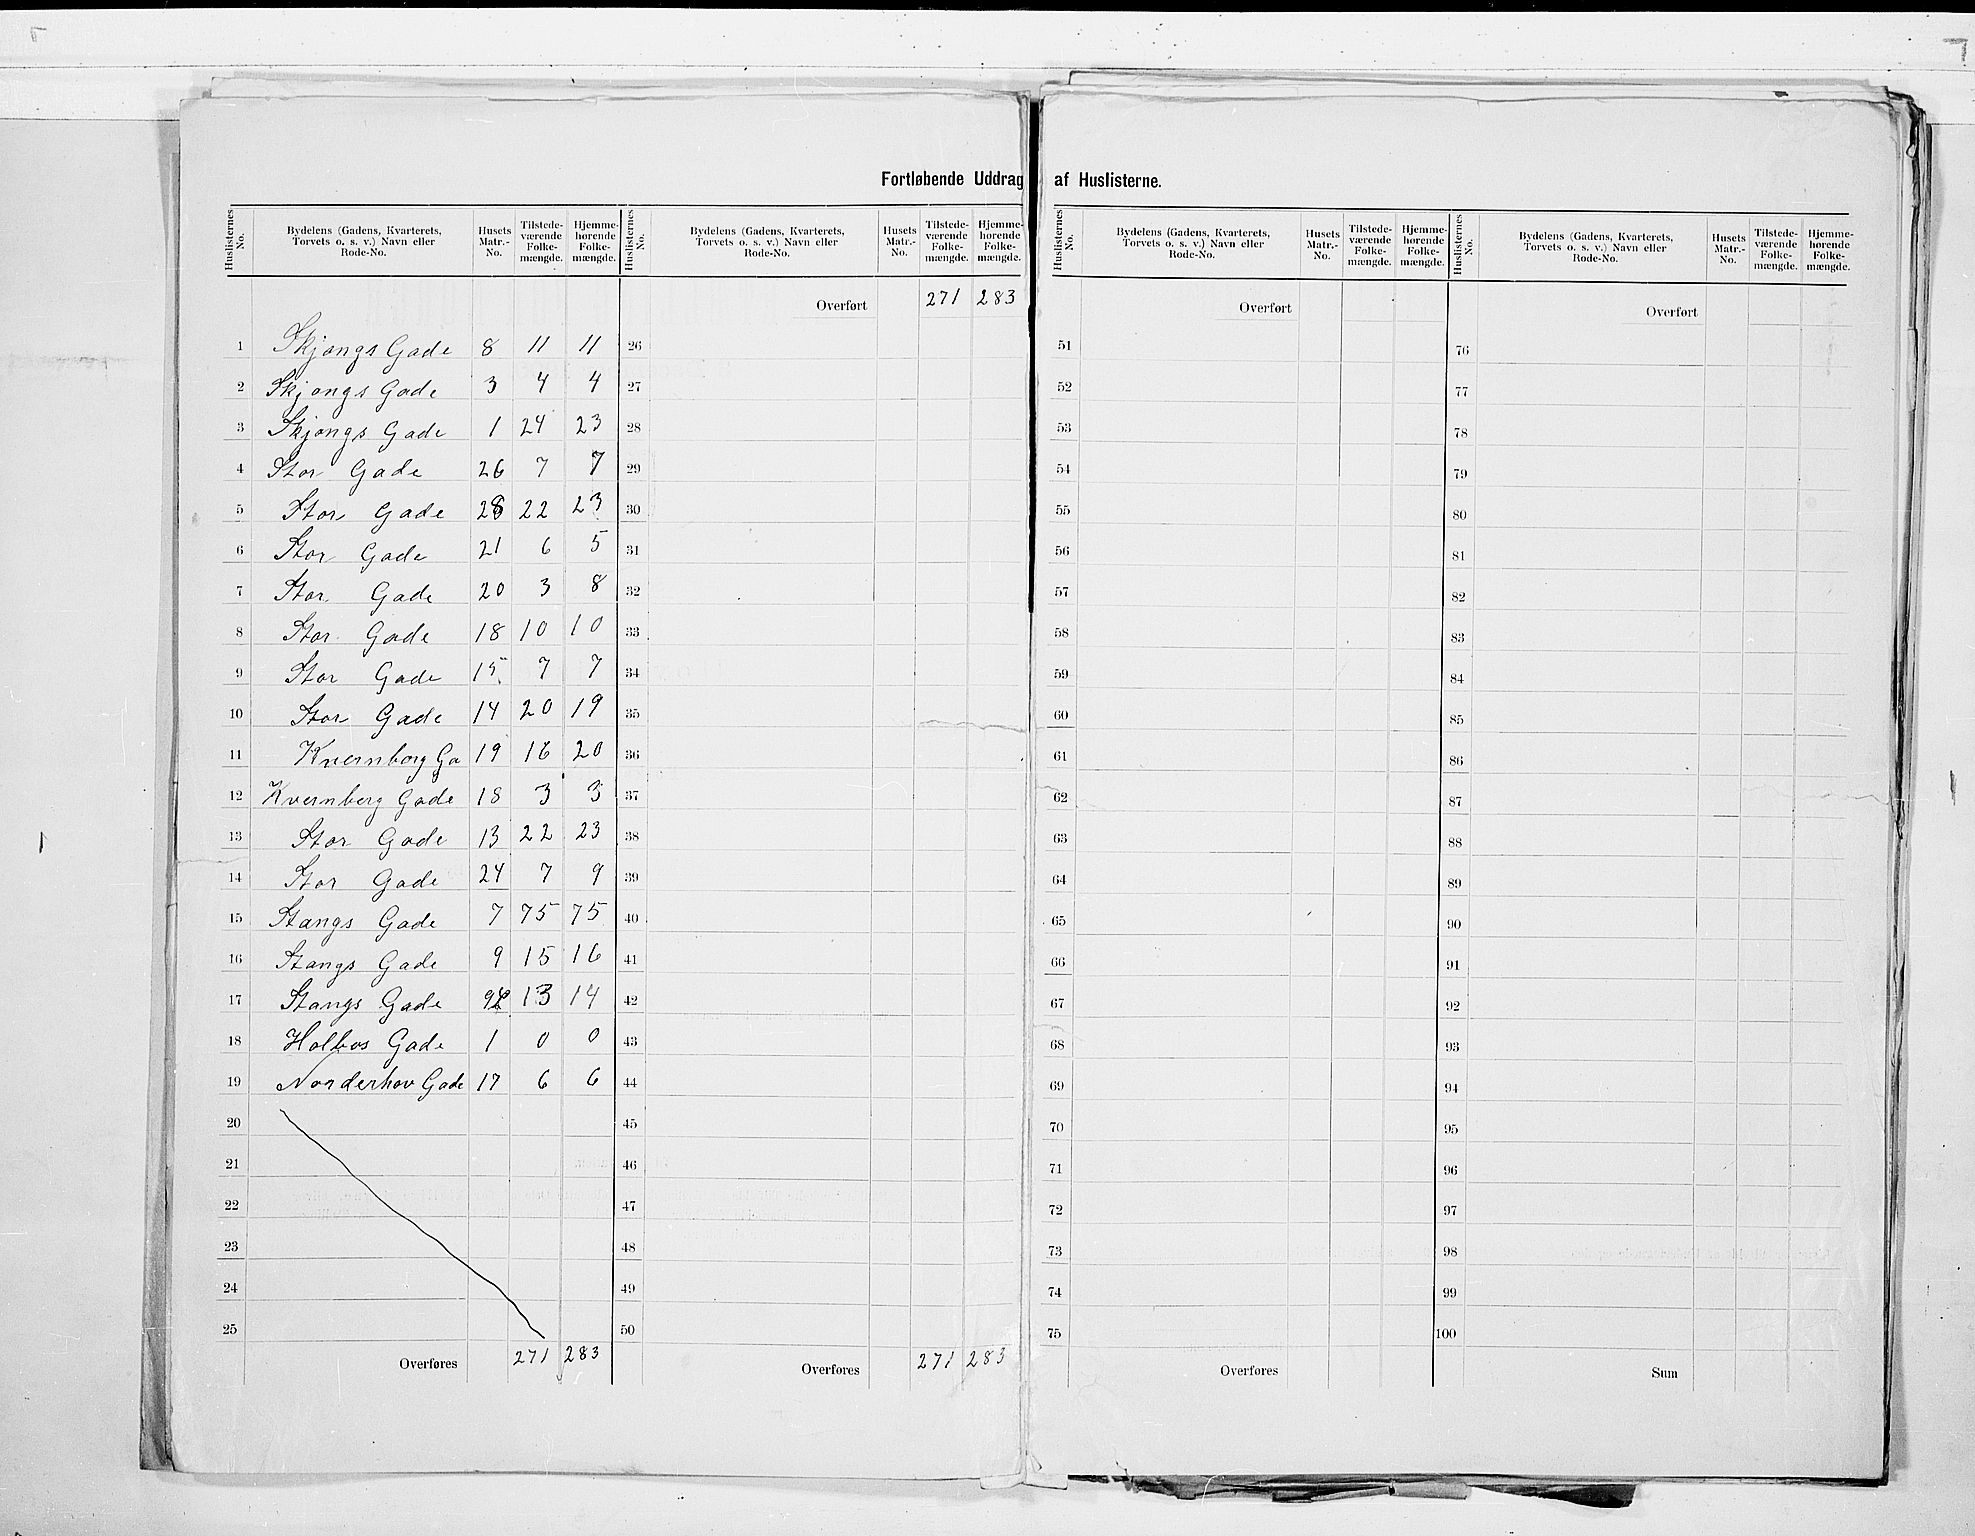 Fortløbende Uddrag af Huslisterne.
Huslisternes No. | Bydelens (Gadens, Kvarterets, Torvets o. s. v.) Navn eller Rode-No. | Husets Matr.-No. | Tilstede-værende Folke-mængde. | Hjemme-hørende Folke-mængde. | Huslisternes No. | Bydelens (Gadens, Kvarterets, Torvets o. s. v.) Navn eller Rode-No. | Husets Matr.-No. | Tilstede-værende Folke-mængde. | Hjemme-hørende Folke-mængde. | Huslisternes No. | Bydelens (Gadens, Kvarterets, Torvets o. s. v.) Navn eller Rode-No. | Husets Matr.-No. | Tilstede-værende Folke-mængde. | Hjemme-hørende Folke-mængde. | Huslisternes No. | Bydelens (Gadens, Kvarterets, Torvets o. s. v.) Navn eller Rode-No. | Husets Matr.-No. | Tilstede-værende Folke-mængde. | Hjemme-hørende Folke-mængde.
Overført 271 283 Overført Overført
1 Skjongs Gade 8 11 11 26 51 76
2 Skjongs Gade 3 4 4 27 52 77
3 Skjongs Gade 1 24 23 28 53 78
4 Stor Gade 26 7 7 29 54 79
5 Stor Gade 28 22 23 30 55 80
6 Stor Gade 21 6 5 31 56 81
7 Stor Gade 20 3 8 32 57 82
8 Stor Gade 18 10 10 33 58 83
9 Stor Gade 15 7 7 34 59 84
10 Stor Gade 14 20 19 35 60 85
11 Kvernberg Ga 19 16 20 36 61 86
12 Kvernberg Gade 18 3 3 37 62 87
13 Stor Gade 13 22 23 38 63 88
14 Stor Gade 24 7 9 39 64 89
15 Stangs Gade 7 75 75 40 65 90
16 Stangs Gade 9 15 16 41 66 91
17 Stangs Gade 13 14 42 67 92
18 Holbos Gade 1 0 0 43 68 93
19 Norderhov Gade 17 6 6 44 69 94
20 45 70 95
21 46 71 96
22 47 72 97
23 48 73 98
24 49 74 99
25 50 75 100
Overføres 271 283 Overføres 271 283 Overføres Sum